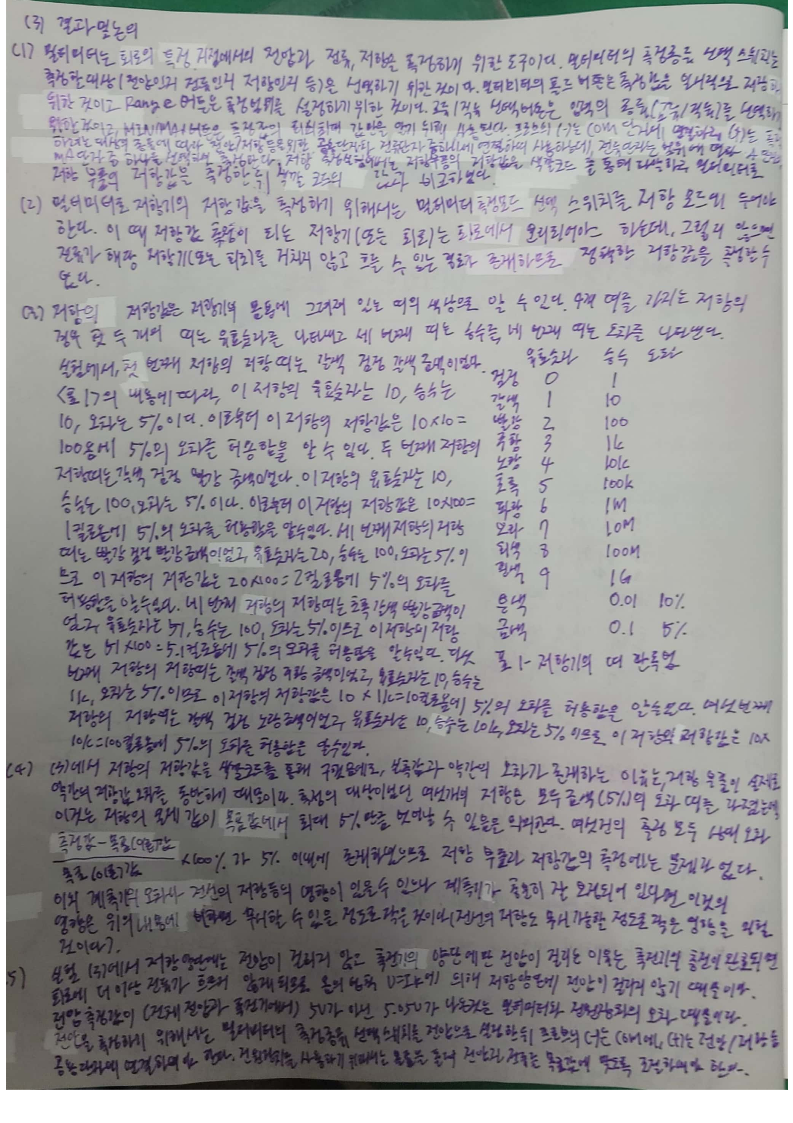 (3) 결과 및 논의
(1) 멀티미터는 회로의 특정 지점에서의 전압과 전류, 저항을 측정하기 위한 도구이다. 멀티미터의 측정종류 선택 스위치는
측정할 대상(전압인지 전류인지 저항인지 등)은 선택하기 위한 것이다. 멀티미터의 홀드 버튼은 측정값을 일시적으로 저장하
위한 것이고 Range 버튼은 측정범위를 설정하기 위한 것이다. 교류/직류 선택버튼은 입력의 종류(교류/직류)를 선택하기
위한 것이고, MIN/MAX 버튼은 측정값의 최소 최대 값만을 얻기 위해 사용된다. 프로브의 (-)는 COM 단자에 연결하고, (+)는
저항 부품의 저항값을 측정한 뒤 색깔 코드의 값과 비교하였다.
(2) 멀티미터로 저항기의 저항값을 측정하기 위해서는 멀티미터 측정모드 선택 스위치를 저항 모드에 두어야
한다. 이 때 저항값 측정이 되는 저항기(또는 회로)는 회로에서 분리되어야 하는데, 그렇지 않으면
전류가 해당 저항기(또는 회로)를 거치지 않고 흐를 수 있는 경로가 존재하므로 정확한 저항값을 측정할 수
없다.
(3) 저항의 저항값은 저항기의 몸통에 그려져 있는 띠의 색상으로 알 수 있다. 4개 띠를 가지는 저항의
경우 첫 두 개의 띠는 유효숫자를 나타내고 세 번째 띠는 승수를, 네 번째 띠는 오차를 나타낸다.
실험에서, 첫 번째 저항의 저항 띠는 갈색 검정 갈색 금색이었다.
<표 1>의 내용에 따라, 이 저항의 유효숫자는 10, 승수는
10, 오차는 5%이다. 이로부터 이 저항의 저항값은 10×10=
100옴에 5%의 오차를 허용함을 알 수 있다. 두 번째 저항의
저항띠는 갈색 검정 빨강 금색이었다. 이 저항의 유효숫자는 10,
승수는 100, 오차는 5%이다. 이로부터 이 저항의 저항값은 10×100=
1킬로옴에 5%의 오차를 허용함을 알 수 있다. 세 번째 저항의 저항
띠는 빨강 검정 빨강 금색이었고, 유효숫자는 20, 승수는 100, 오차는 5%이
므로 이 저항의 저항값은 20×100=2킬로옴에 5%의 오차를
허용함을 알 수 있다. 네 번째 저항의 저항띠는 초록 갈색 빨강 금색이
었고 유효숫자는 51, 승수는 100, 오차는 5%이므로 이 저항의 저항
값은 51×100=5.1킬로옴에 5%의 오차를 허용함을 알 수 있다. 다섯
번째 저항의 저항띠는 갈색 검정 주황 금색이었고, 유효숫자는 10, 승수는
1k, 오차는 5%이므로 이 저항의 저항값은 10×1k=10킬로옴에 5%의 오차를 허용함을 알 수 있다. 여섯 번째
저항의 저항띠는 갈색 검정 노랑 금색이었고 유효숫자는 10, 승수는 10k, 오차는 5%이므로 이 저항의 저항값은 10×
10k=100킬로옴에 5%의 오차를 허용함을 알 수 있다.
유효숫자 승수 오차
검정 0 1
갈색 1 10
빨강 2 100
주황 3 1k
노랑 4 10k
초록 5 100k
파랑 6 1M
보라 7 10M
회색 8 100M
흰색 9 1G
은색 0.01 10%
금색 0.1 5%
표 1- 저항기의 띠 판독법
(4) (3)에서 저항의 저항값을 색깔코드를 통해 구했음에도, 측정값과 약간의 오차가 존재하는 이유는, 저항 부품이 실제로
약간의 저항값 오차를 동반하기 때문이다. 측정의 대상이었던 여섯개의 저항은 모두 금색(5%)의 오차 띠를 가졌는데
이것은 저항의 실제 값이 목표값에서 최대 5%만큼 벗어날 수 있음을 의미한다. 여섯건의 측정 모두 상대 오차
측정값-목표(이론)값
목표(이론)값
×100%가 5% 이내에 존재하였으므로 저항 부품과 저항값의 측정에는 문제가 없다.
이외 계측기의 오차나 전선의 저항 등의 영향이 있을 수 있으나 계측기가 충분히 잘 보정되어 있다면 이것의
영향은 위의 내용에 비하면 무시할 수 있을 정도로 작을 것이다(전선의 저항도 무시 가능할 정도로 작은 영향을 미칠
것이다).
5) 실험 (3)에서 저항 양단에는 전압이 걸리지 않고 축전기의 양단에만 전압이 걸리는 이유는 축전기의 충전이 완료되면
회로에 더 이상 전류가 흐르지 않게 되므로 옴의 법칙 V=IR에 의해 저항 양단에 전압이 걸리지 않기 때문이다.
전압 측정값이 (전체 전압과 축전기에서) 5V가 아닌 5.05V가 나온 것은 멀티미터와 전원장치의 오차 때문이다.
전압을 측정하기 위해서는 멀티미터의 측정종류 선택 스위치를 전압으로 설정한 뒤 프로브의 (-)는 COM에, (+)는 전압/저항 등
공용단자에 연결하여야 한다. 전원장치를 사용하기 위해서는 전압과 전류를 목표값에 맞도록 조절하여야 한다.